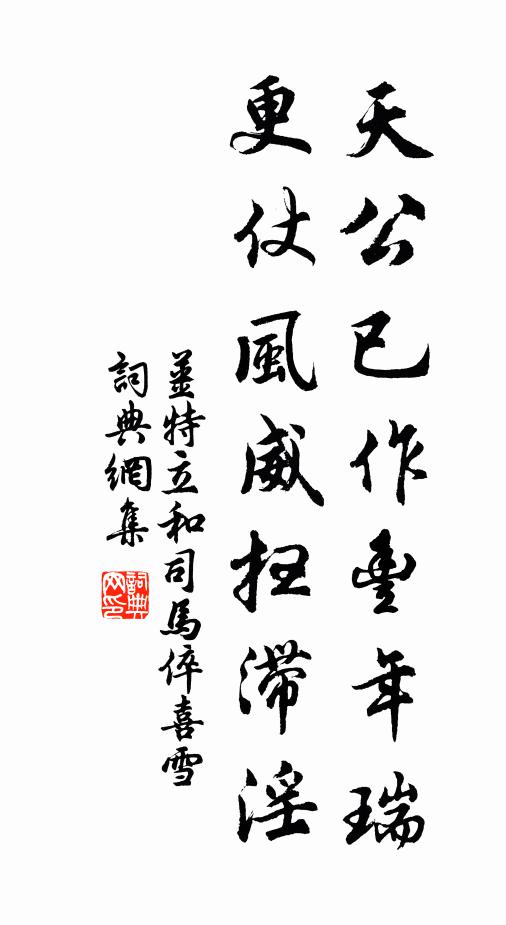 天公已作豐年瑞
更仗風威扫滯淫
姜特立和司馬倅喜雪
詞典網集
詞典网印